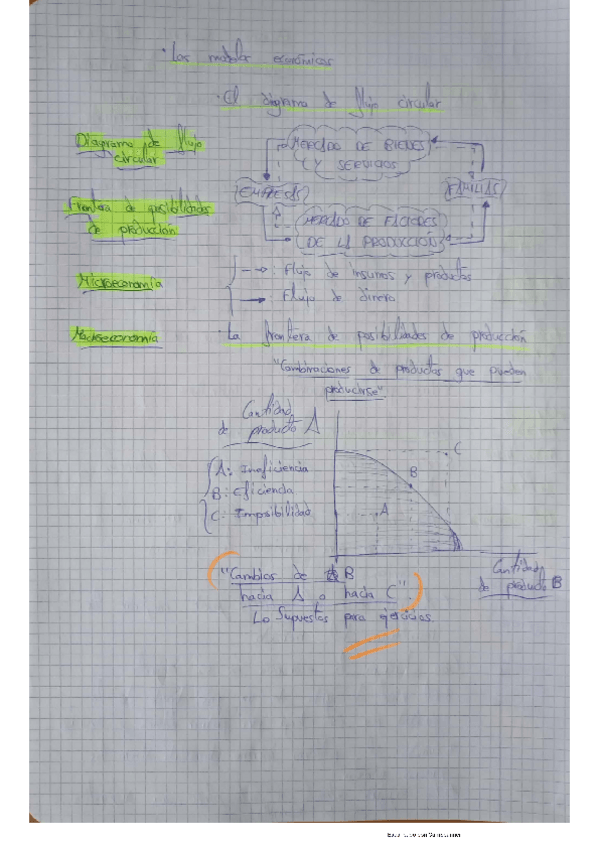 · Los modelos económicos
· El diagrama de flujo circular
Diagrama de flujo
circular
Frontera de posibilidades
de producción
Microeconomía
Macroeconomía
MERCADO DE BIENES
Y SERVICIOS
EMPRESAS
FAMILIAS
MERCADO DE FACTORES
DE LA PRODUCCIÓN
: Flujo de insumos y productos
: Flujo de dinero
· La frontera de posibilidades de producción
"Combinaciones de productos que pueden
producirse"
Cantidad
de producto A
A: Ineficiencia
B: Eficiencia
C: Imposibilidad
C
B
A
Cantidad
de producto B
"Cambios de B
hacia A o hacia C".
Supuestos para ejercicios.